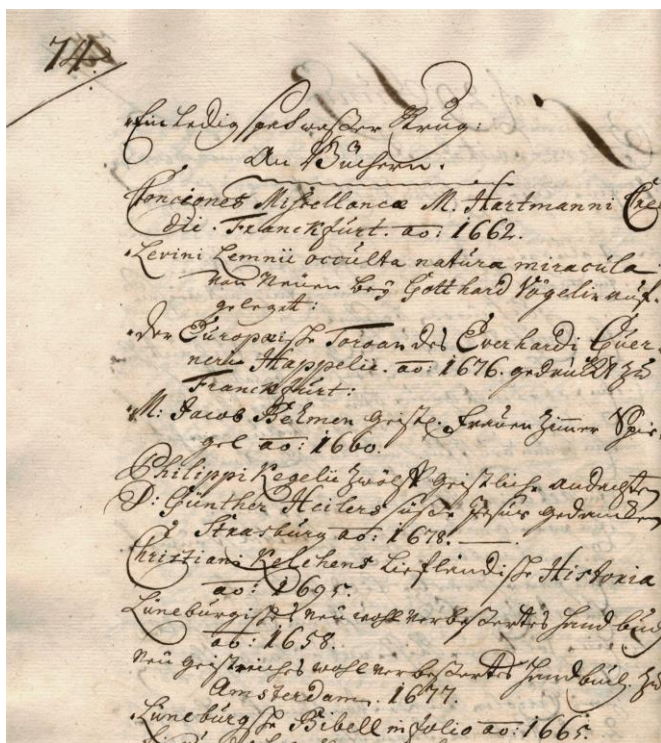 74.
Ein ledig Krug:
An Büchern.
Conciones Miscellaneæ M. Hartmanni Crei
dii. Franckfurt. ao: 1662.
Levini Lemnii occulta natura miracula
von Neuen bey Gotthard Vögelin auf-
geleget:
der Europæische Toroan des Everhardi Guer-
neri Happelii. ao: 1676. gedruckt zu
Franckfurt:
M: Jacob geistl: Frauen Zimmer Spie-
gel ao: 1660.
Philippi Kegelii Zwölff geistliche Andachten
D: Günther Heilers süße Jesus gedancken
Strasburg ao: 1678.
Christiani Kelchens Liefländische Historia
ao: 1695.
Lüneburgisches neu wohl verbessertes Hand buch
ao: 1658.
Neu geistreiches wohl verbessertes Handbuch zu
Amsterdam. 1677.
Lüneburgsche Bibell in folio ao: 1665.